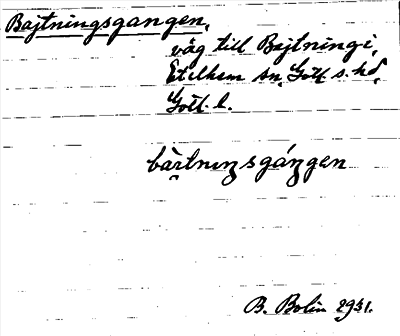 Bajtningsgangen,
väg till Bajtningi,
Etelhem sn, Gotl. s. hd,
Gotl. l.
bàɪtnɪŋsgáŋgen
B. Bolin 1931.